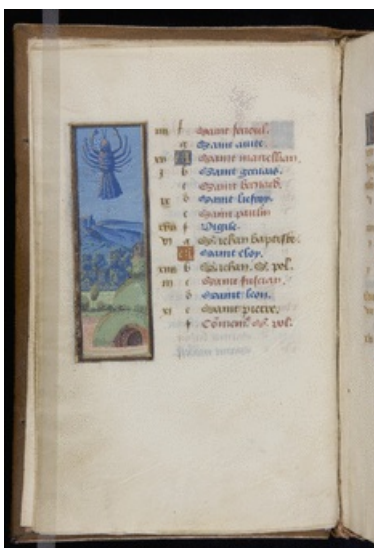 f Saint fereul.
g Saint avite.
A Saint marcellian.
j b Saint gervais.
c Saint bernard.
ix d Saint liefroy.
e Saint paulin
f Vigile.
vj g S. Jehan baptiste.
A Saint eloy.
b S. Jehan. S. pol.
iij c Saint fuscian.
d Saint leon.
xj e Saint pierre.
f Comem. S. pol.